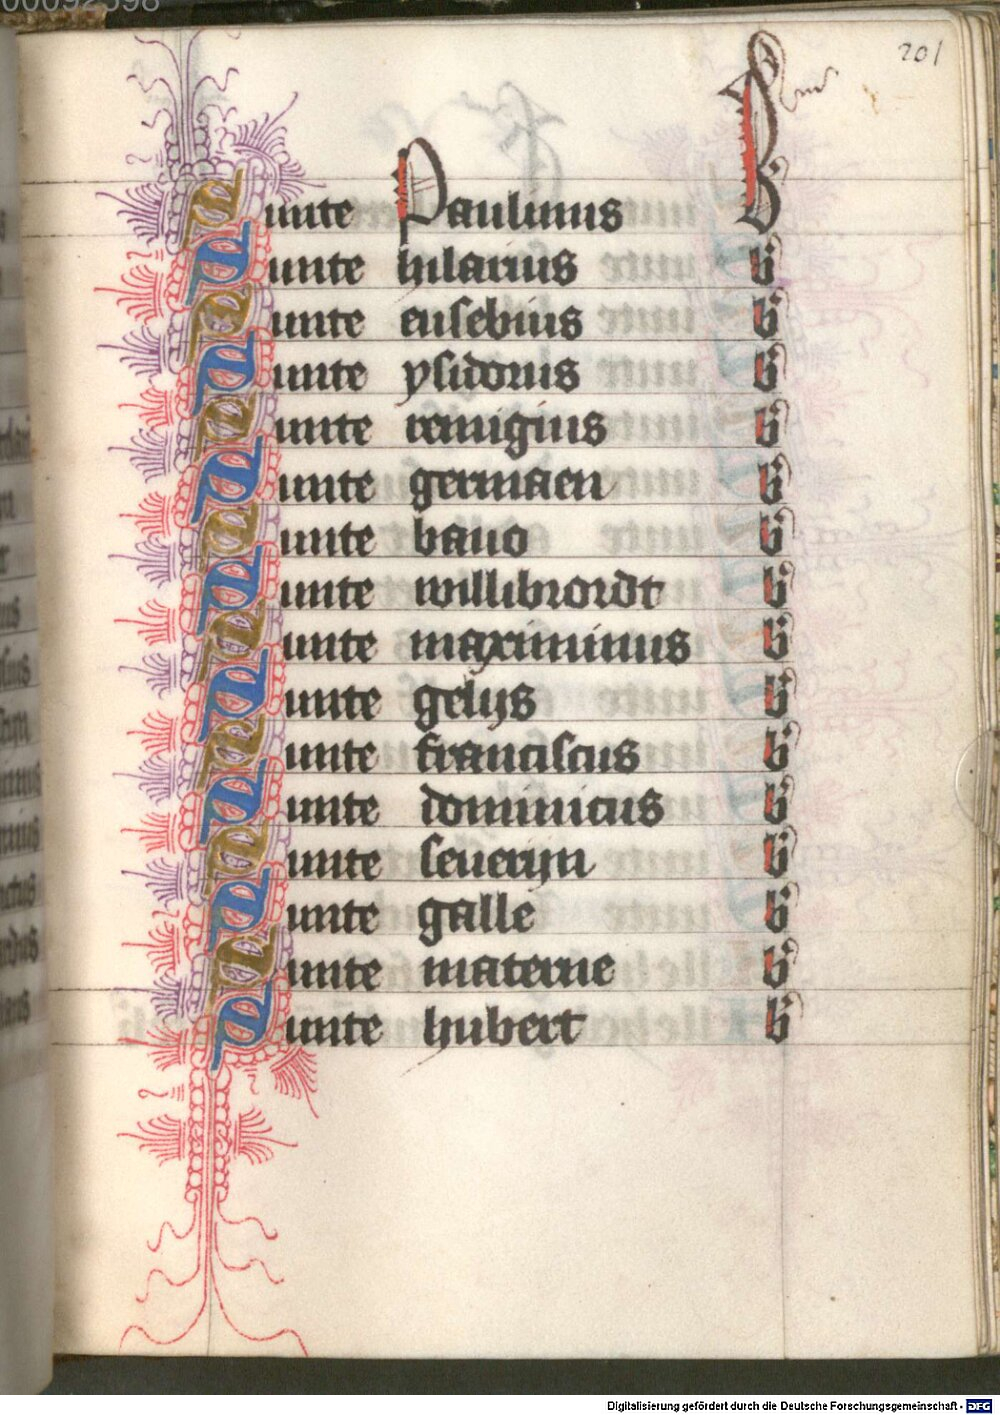 00092598
201
Sunte Paulinus B
Sunte hilarius b
Sunte eusebius b
Sunte ysidorus b
Sunte remigius b
Sunte germaen b
Sunte bauo b
Sunte willibrordt b
Sunte maximinus b
Sunte gelijs b
Sunte franciscus b
Sunte dominicus b
Sunte seuerijn b
Sunte galle b
Sunte materne b
Sunte hubert b
Digitalisierung gefördert durch die Deutsche Forschungsgemeinschaft - DFG